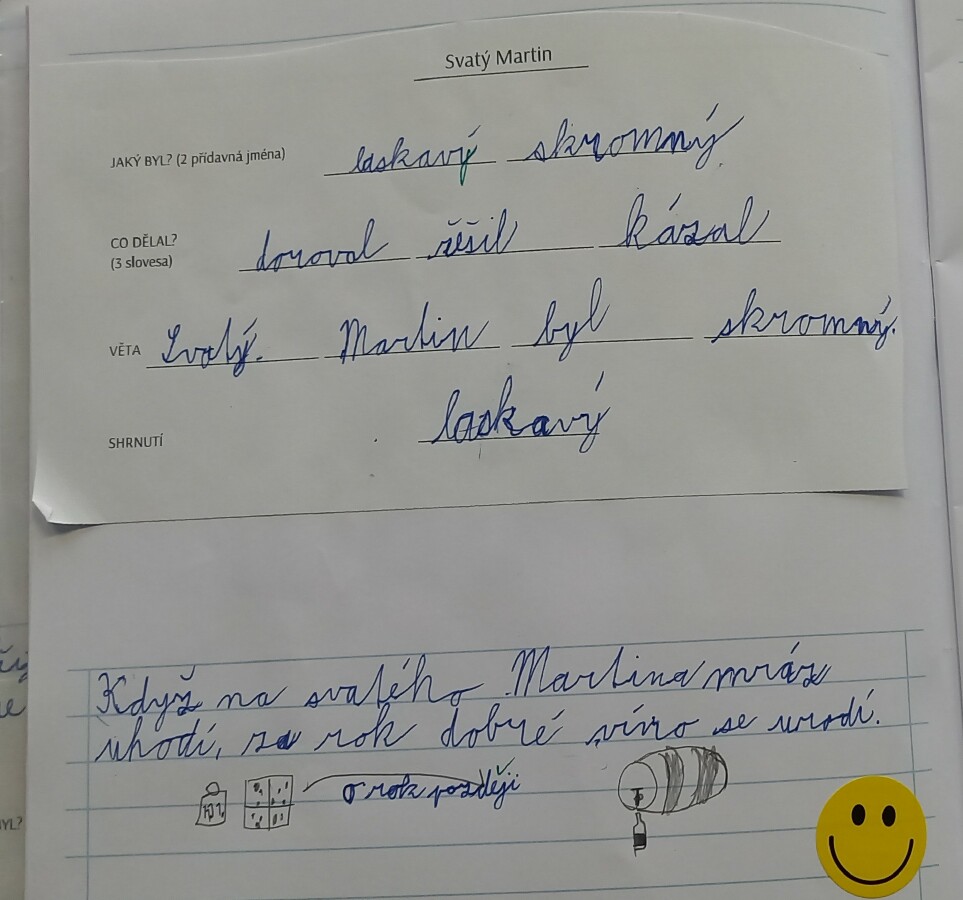 Svatý Martin
JAKÝ BYL? (2 přídavná jména) laskavý skromný
CO DĚLAL? doroval řěšil kázal
(3 slovesa)
VĚTA Svatý. Martin byl skromný.
SHRNUTÍ laskavý
Když na svatého Martina mráz
uhodí, za rok dobré víno se urodí.
o rok později
YL?